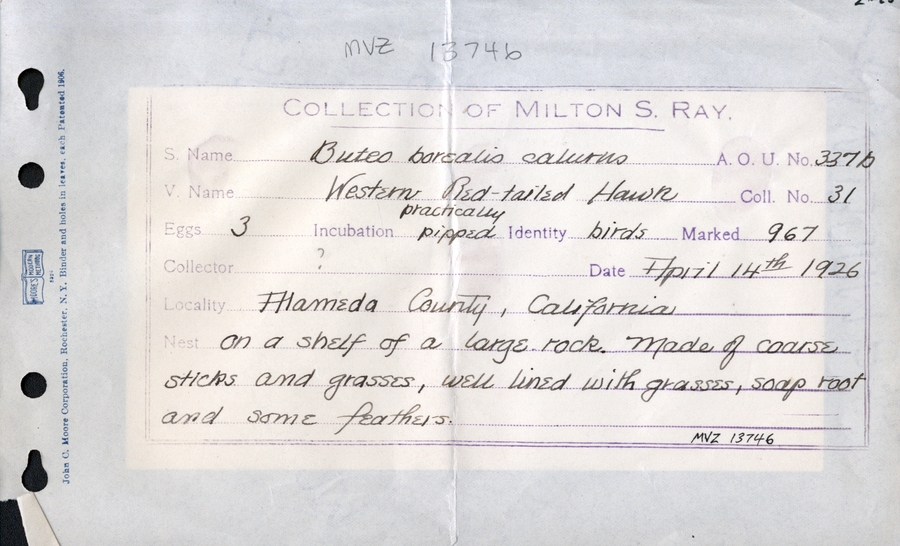 MVZ 13746
COLLECTION OF MILTON S. RAY.
S. Name Buteo borealis calurus A. O. U. No. 337b
V. Name Western Red-tailed Hawk Coll. No. 31
practically
Eggs 3 Incubation pipped Identity birds Marked 967
Collector ? Date April 14th 1926
Locality Alameda County, California
Nest on a shelf of a large rock. Made of coarse
sticks and grasses, well lined with grasses, soap root
and some feathers.
MVZ 13746
John C. Moore Corporation, Rochester, N. Y. Binder and holes in leaves, each Patented 1906.
MOORE'S MODERN METHODS